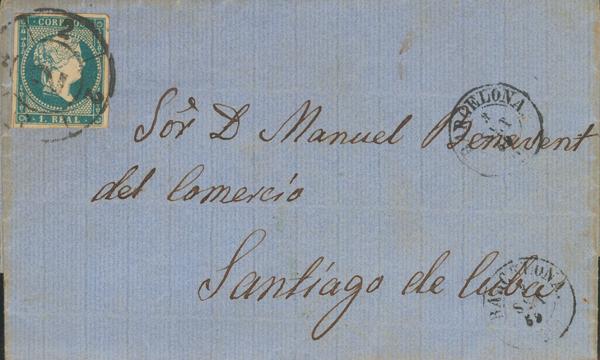 CORREOS
1. REAL
2
BARCELONA
Sor. D Manuel Benavent
del Comercio
Santiago de Cuba
BARCELONA